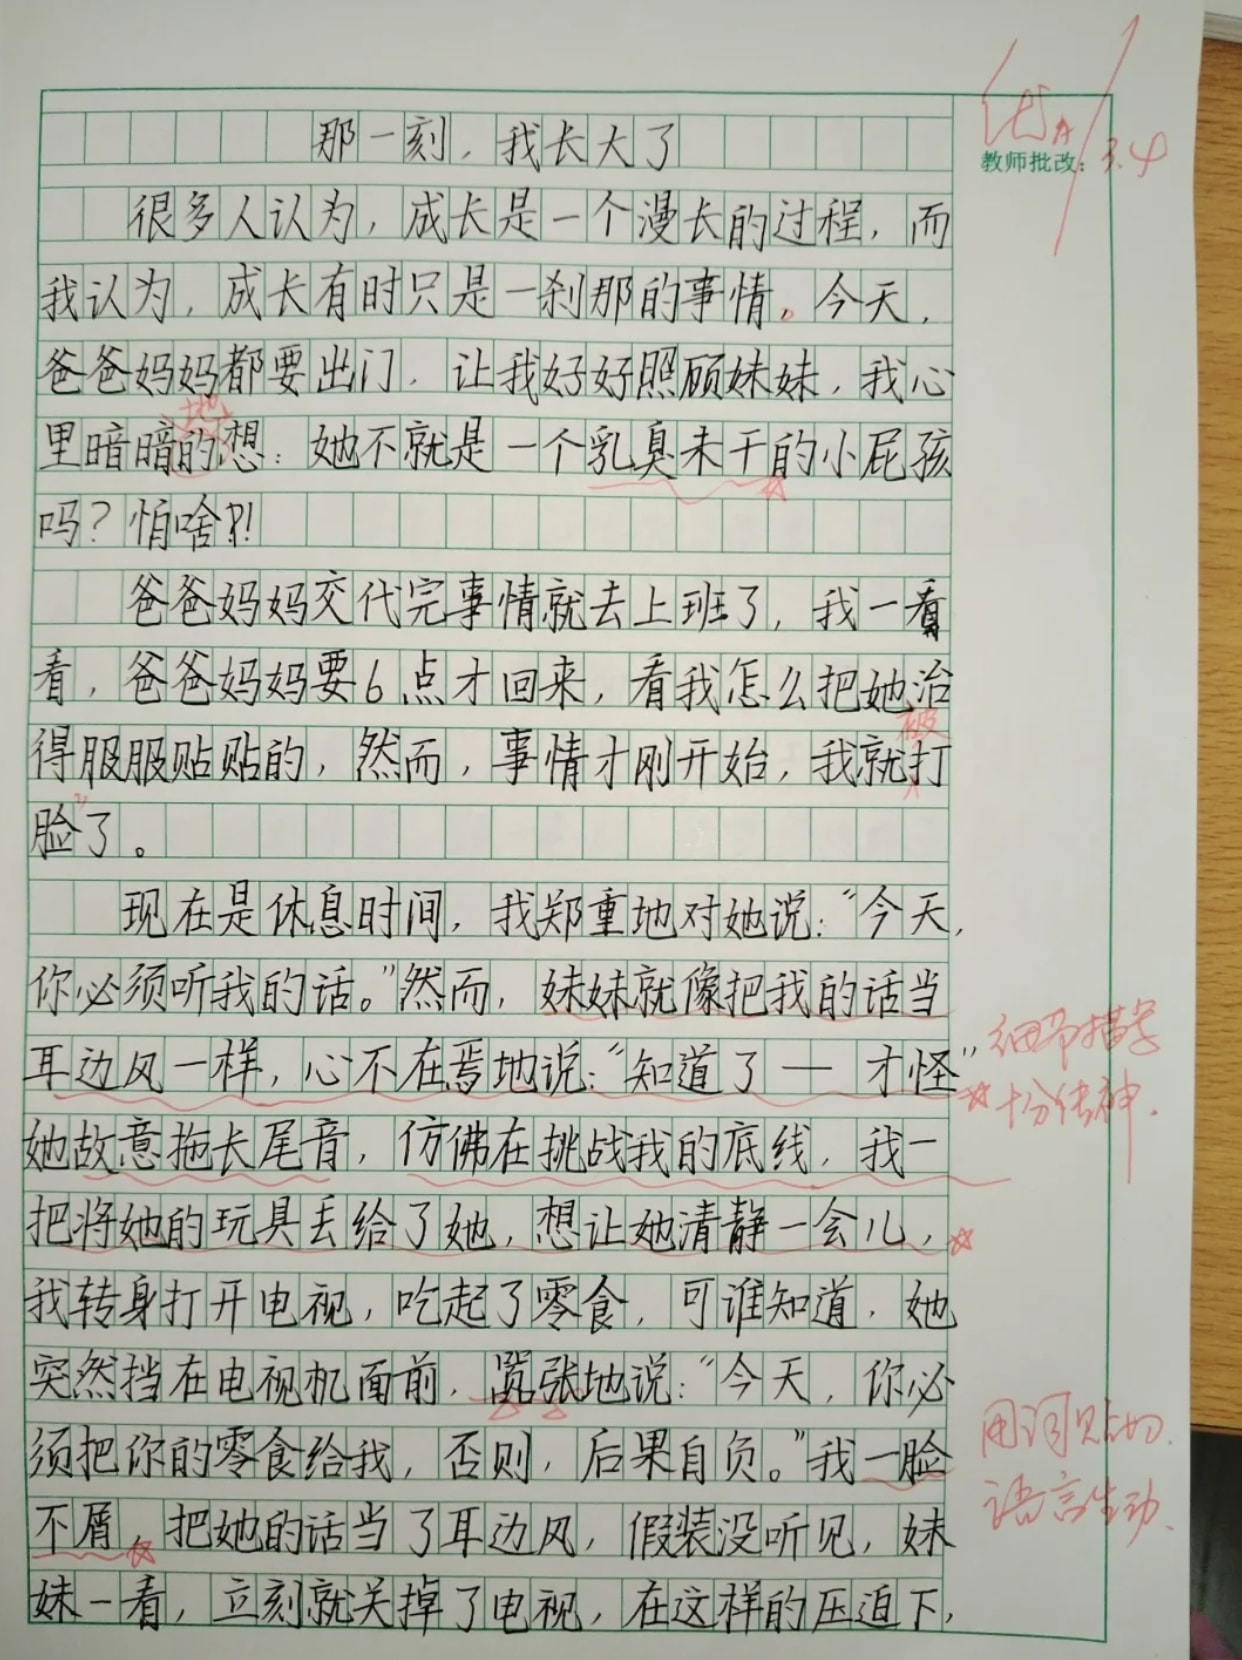 优A
教师批改：3.4
那一刻，我长大了
很多人认为，成长是一个漫长的过程，而
我认为，成长有时只是一刹那的事情。今天，
爸爸妈妈都要出门，让我好好照顾妹妹，我心
地
里暗暗的想：她不就是一个乳臭未干的小屁孩
吗？怕啥?!
爸爸妈妈交代完事情就去上班了，我一看
看，爸爸妈妈要6点才回来，看我怎么把她治
被
得服服贴贴的，然而，事情才刚开始，我就打
脸”了。
现在是休息时间，我郑重地对她说：“今天，
你必须听我的话。”然而，妹妹就像把我的话当
耳边风一样，心不在焉地说：“知道了—才怪”
细节描写
十分传神.
她故意拖长尾音，仿佛在挑战我的底线，我一
把将她的玩具丢给了她，想让她清静一会儿，
我转身打开电视，吃起了零食，可谁知道，她
突然挡在电视机面前，嚣张地说：“今天，你必
须把你的零食给我，否则，后果自负。”我一脸
用词贴切.
语言生动.
不屑，把她的话当了耳边风，假装没听见，妹
妹一看，立刻就关掉了电视，在这样的压迫下，